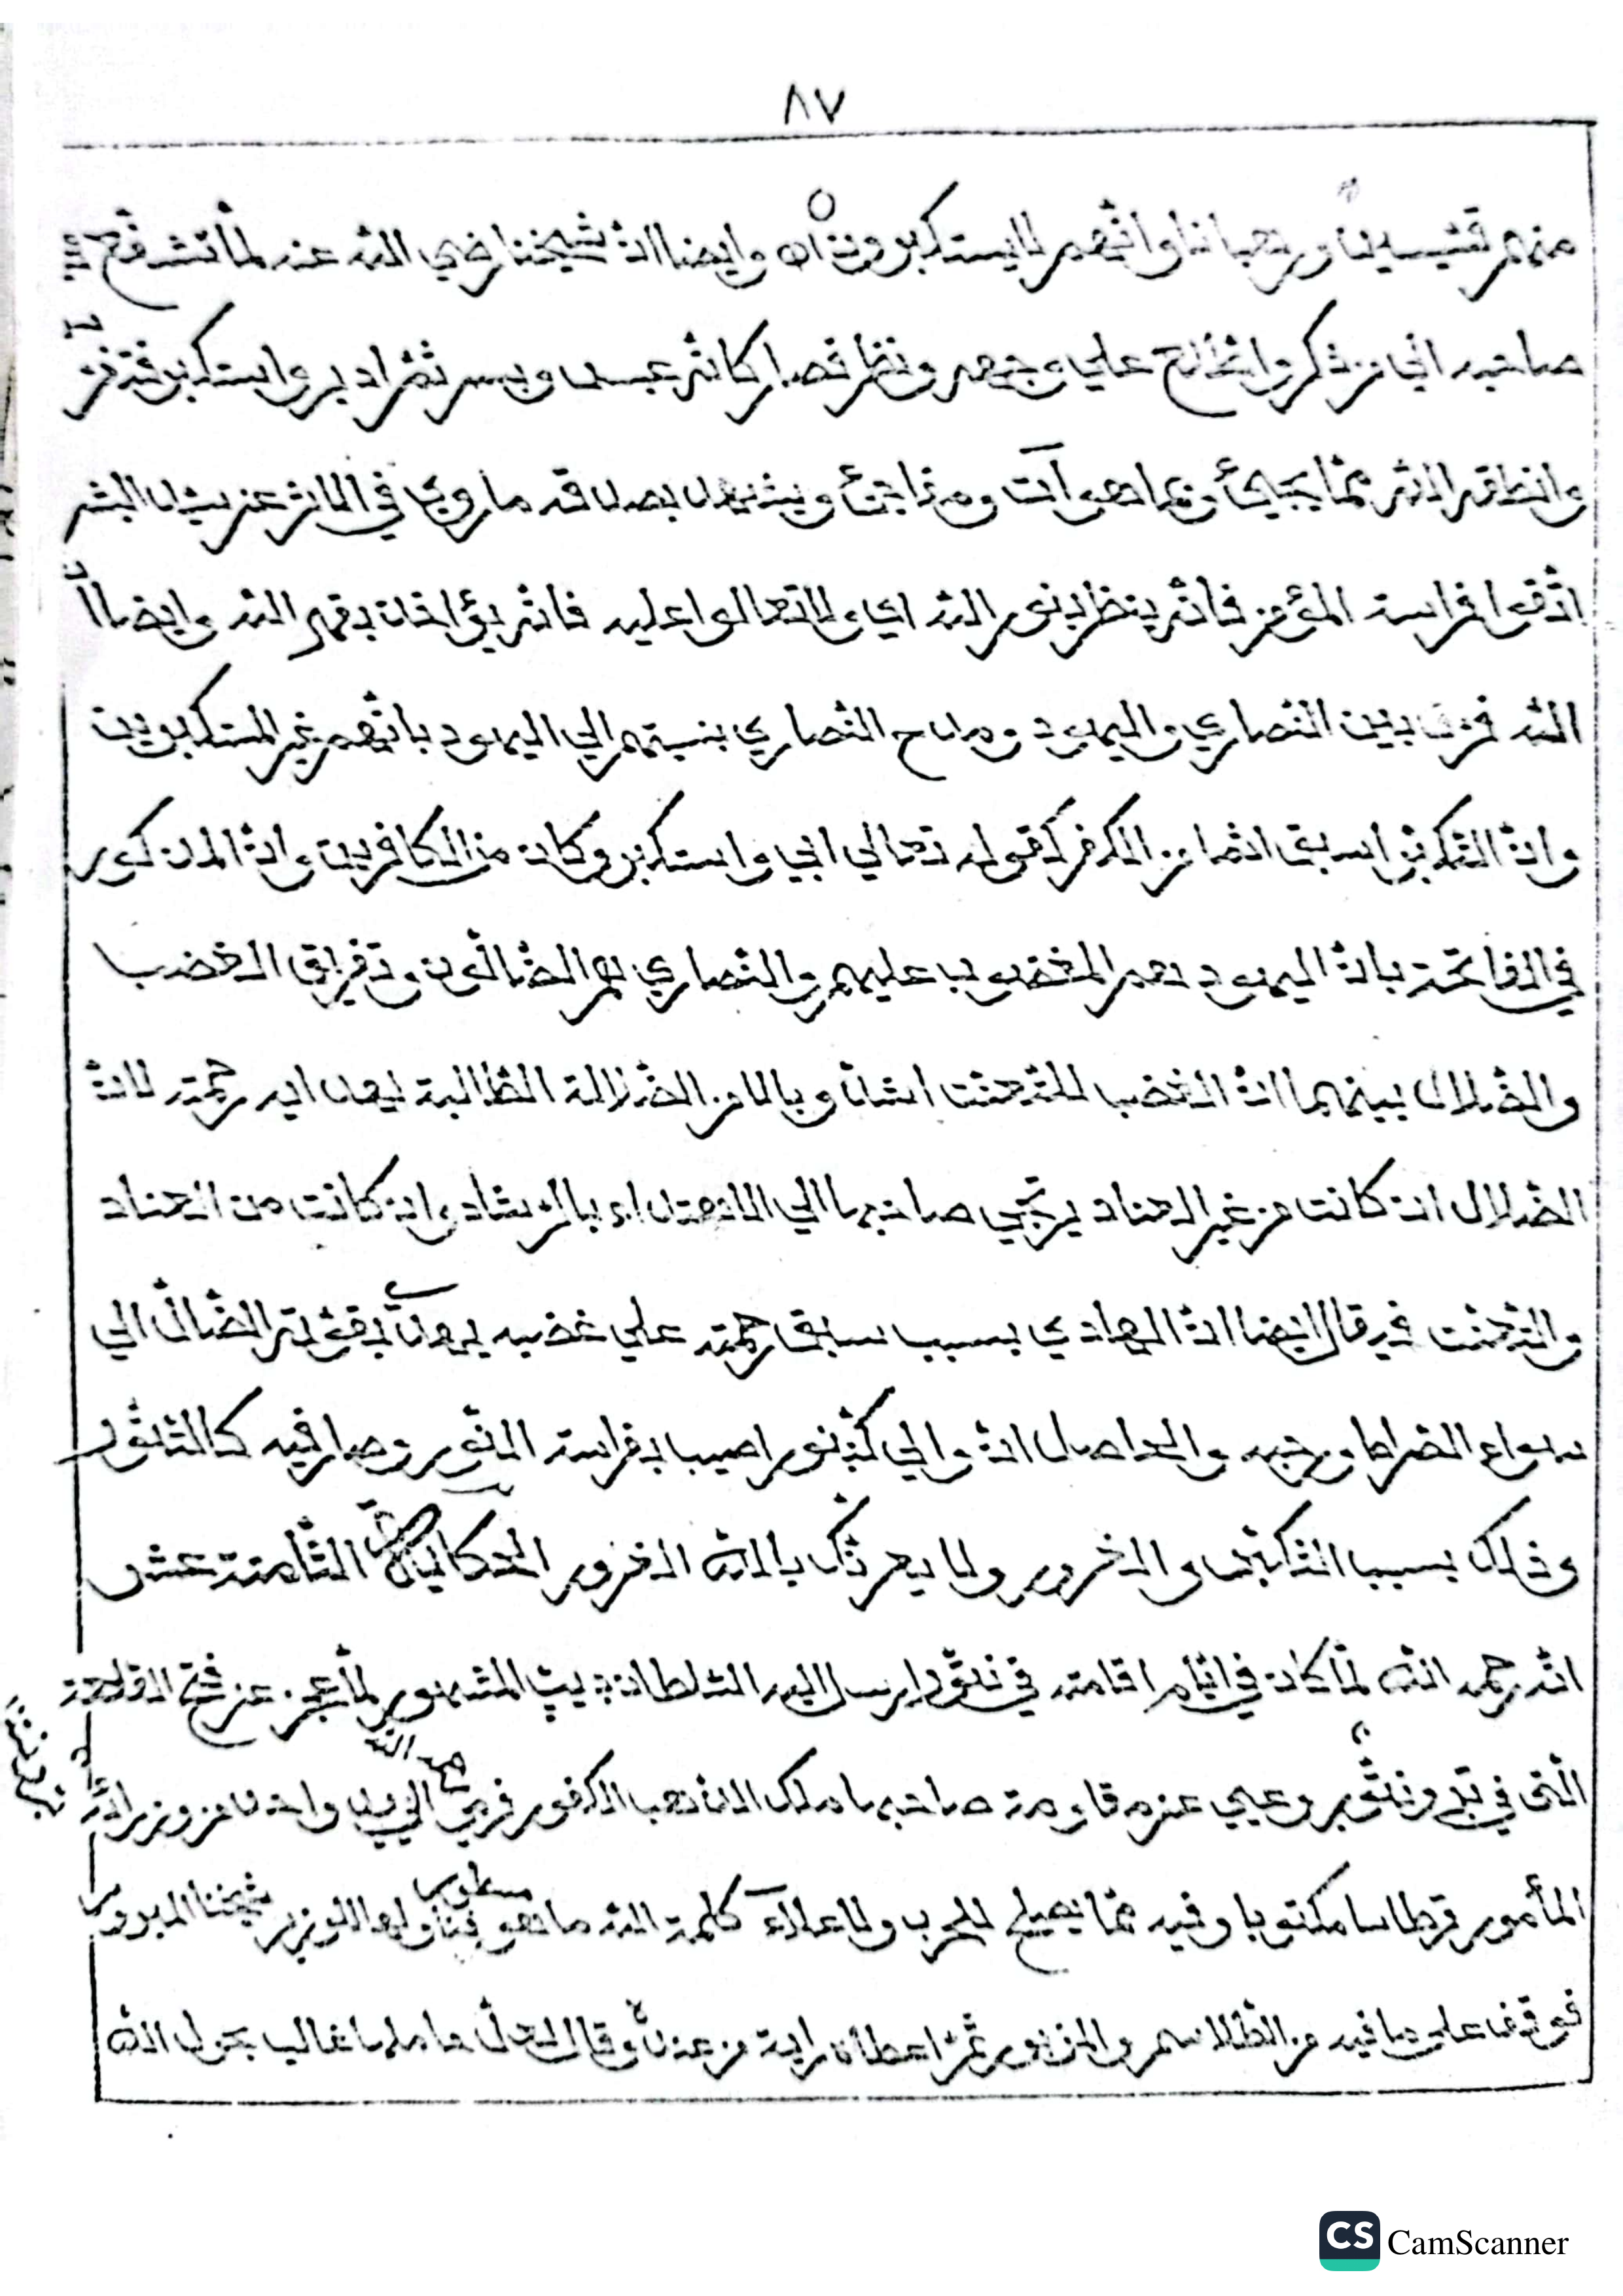 ٨٧
منهم قسّيسين ورهبانا وانّهم لا يستكبرون اه وايضا انّ شيخنا رضي اللّه عنه لمّا تشرّفع
صاحبه اني من ذكر واطّلاع علي وجهه ونظر فصار كانّه عبس وبسر ثمّ ادبر واستكبر
وانطقه اللّه ممّا يجيئ وبما هو آت وينبّه بصدقه ما روي في المأثر عن سيّد البشر
اتّقوا فراسة المؤمن فانّه ينظر بنور اللّه اي ولا تتعالوا عليه فانّه يؤاخذن بقهر اللّه وايضا انّ
اللّه فرق بين النّصاري واليهود ومدح النّصاري بنسبتهم الي اليهود بانّهم غير المستكبرين
وانّ التّكبّر اسبق انّما من الكفر كقوله تعالي ابي واستكبر وكان من الكافرين وانّ المذكور
في الفاتحة بانّ اليهود هم المغضوب عليهم والنّصاري هم الضّالّون وتفريق الغضب
والضّلال بينهما انّ الغضب للتّعنّت اشدّ وبالا من الضّلالة الطّالبة لهداية رحمته لانّ
الضّلال ان كانت من غير العناد يرتجي صاحبها الي الاهتداء بالرّشاد وان كانت من العناد
والتّعنّت قال ايضا انّ الهادي بسبب سبق رحمته علي غضبه يهدي بقوّته الضّالّ الي
سواء الصّراط ورحبه والحاصل انّ والي كبّنور اصيب بفراسة المنوّر وصار فيه كالتّنّور
وذلك بسبب التّكبّر والغرور ولا يغرنّك باللّه الغرور الحكاية الثّامنة عشر
انّه رحمه اللّه لمّا كان في ايّام اقامته في نڤّور ارسل اليه السّلطان ٹيپو المشهور لمّا عجز عن فتح القلعة
الّتي في نڤّور وعيي عن مقاومة صاحبها ملك الانذهب الكفور الي يد واحد من وزرائه
المأمور قرطاسا مكتوبا وفيه ممّا يصلح للحرب ولاعلاء كلمة اللّه ما هو مسطور فناولها الوزير شيخنا المبرور
فوقف علي ما فيه من الطّلاسم والمزبور ثمّ اعطاه راية من عنده وقال لعلّ حاملها غالب بحول اللّه
CS CamScanner